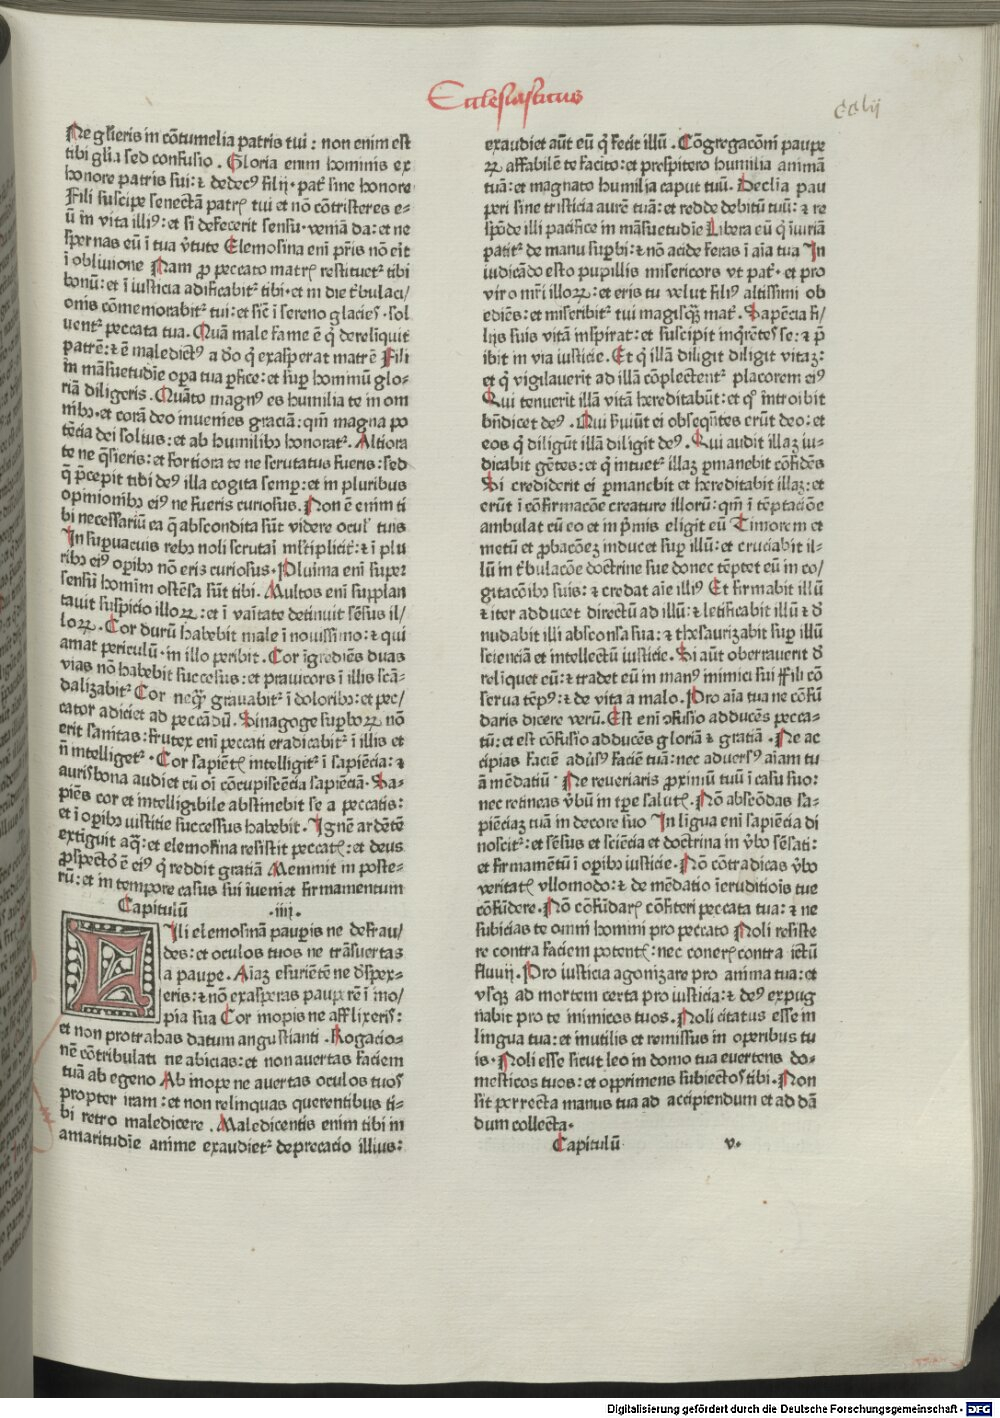 Ecclesiasticus
cclij
Ne glẽris in cõtumelia patris tui : non enim est
tibi glĩa sed confusio . Gloria enim hominis ex
honore patris sui: ⁊ dedecꝰ filij · patˀ sine honore
Fili suscipe senectã patrꝭ tui et nõ cõtristeres e⸗
ũ in vita illiꝰ: et si defecerit sensu· veniã da: et ne
spernas eũ ĩ tua v̾tute Elemosina eni p̃ris nõ eit
ĩ obliuione Nam ꝓ peccato matrꝭ restituetˀ tibi
bonũ: et ĩ iusticia adificabitˀ tibi· et in die t̾bulaci/
onis cõmemorabitˀ tui: et sic̃ ĩ sereno glacies · sol
uentˀ peccata tua . Quã male fame ẽ q̃ dereliquit
patrẽ: ⁊ ẽ maledictꝰ a do q̃ exasperat matrẽ Fili
in mãsuetudĩe opa tua ꝑfice: et suꝑ hominũ glo⸗
riã diligeris . Quãto magnꝰ es humilia te in om
nibꝫ· et corã deo inuenies graciã: qm̃ magna po
tẽcia dei solius: et ab humilibꝫ honoratˀ. Altiora
te ne q̃sieris: et fortiora te ne scrutatus fueris: sed
q̃ p̃cepit tibi deꝰ illa cogita semꝑ: et in pluribus
opinionibꝫ eiꝰ ne fueris curiosus. Non ẽ enim ti
bi necessariũ ea q̃ abscondita sũt videre oculˀ tuis
In suꝑuacuis rebꝫ noli scrutari ml̾tiplicit̾: ⁊ ĩ plu
ribꝫ eiꝰ oꝑibꝫ nõ eris curiosus· Plurima eni super
sensũ homim ostẽsa sũt tibi. Multos eni supplan
tauit suspicio illoꝝ: et ĩ vaĩtate detinuit sẽsus il/
loꝝ. Cor durũ habebit male ĩ nouissimo: ⁊ qui
amat periculũ · in illo peribit . Cor ĩgrediẽs duas
vias nõ habebit successus: et prauicors ĩ illis scã⸗
dalizabitˀ Cor neqꝫ grauabitˀ ĩ doloribꝫ: et pec/
cator adiciet ad peccãdũ. Sinagoge suꝑboꝝ nõ
erit sanitas: frutex eni peccati eradicabitˀ ĩ illis et
ñ intelligetˀ · Cor sapiẽtꝭ intelligitˀ ĩ sapiẽcia: ⁊
auris bona audiet cũ oĩ cõcupiscẽcia sapiẽciã. Sa⸗
piẽs cor et intelligibile abstinebit se a peccatis:
et ĩ oꝑibꝫ iustitie successus habebit . Ignẽ ardẽtẽ
extiguit aq̃: et elemosina resistit peccatꝭ: et deus
ꝓspectoꝛ ẽ eiꝰ q̃ reddit gratiã Meminit in poste⸗
rũ: et in tempore casus sui iueniet firmamentum
Capitulũ .iiij.
FIli elemosinã pauꝑis ne defrau/
des: et oculos tuos ne trãsuertas
a paupe . Aiaꝫ esuriẽtẽ ne d̾spex⸗
eris: ⁊ nõ exasperas paupe rẽ ĩ ino/
pia sua Cor inopis ne afflixeris:
et non protrahas datum angustianti . Rogacio⸗
nẽ cõtribulati ne abicias: et non auertas faciem
tuã ab egeno Ab inope ne auertas oculos tuos
propter iram: et non relinquas querentibus ti⸗
bi retro maledicere . Maledicentis enim tibi in
amaritudĩe anime exaudietˀ deprecacio illius:
exaudiet aũt eũ q̃ fecit illũ . Cõgregacõni paupe
ꝝ affabilẽ te facito: et prespitero humilia animã
tuã: et magnato humilia caput tuũ. Declĩa pau
peri sine tristicia aurẽ tuã: et redde debitũ tuũ: ⁊ re
spõde illi pacifice in mãsuetudĩe Libera eũ q̃ iuriã
patitˀ de manu suꝑbi: ⁊ nõ acide feras ĩ aĩa tua In
iudicãdo esto pupillis misericors vt patˀ · et pro
viro mr̃i illoꝝ: et eris tu velut filiꝰ altissimi ob
ediẽs: et miseribitˀ tui magisqꝫ matˀ . Sapẽcia fi/
lijs suis vitã inspirat: et suscipit inq̃rẽtes se: ⁊ p̃
ibit in via iusticie. Et q̃ illã diligit diligit vitaꝫ:
et q̃ vigilauerit ad illã cõplectentˀ placorem eiꝰ
Qui tenuerit illã vitã hereditabũt: et qͦ introibit
bñdicet deꝰ . Qui ẛuiũt ei obseqñtes erũt deo: et
eos q̃ diligũt illã diligit deꝰ . Qui audit illaꝫ iu⸗
dicabit gẽtes: et q̃ intuetˀ illaꝫ ꝑmanebit cõfidẽs
Si crediderit ei ꝑmanebit et hereditabit illaꝫ: et
erũt ĩ cõfirmacõe creature illorũ: qm̃ ĩ tẽptaciõe
ambulat cũ eo et in p̃mis eligit eũ Timorem et
metũ et ꝓbacõeꝫ inducet suꝑ illũ: et cruciabit il⸗
lũ in t̾bulacõe doctrine sue donec tẽptet eũ in co/
gitacõibꝫ suis: ⁊ credat aĩe illiꝰ Et firmabit illũ
⁊ iter adducet directũ ad illũ: ⁊ letificabit illũ ⁊ d̾
nudabit illi absconsa sua: ⁊ thesaurizabit suꝑ illũ
scienciã et intellectũ iusticie. Si aũt oberrauerit d̾
reliquet eũ: ⁊ tradet eũ in manꝰ inimici sui Fili cõ
serua tẽpꝰ: ⁊ de vita a malo . Pro aĩa tua ne cõfũ
daris dicere verũ. Est eni ↄfusio adducẽs pecca⸗
tũ: et est cõfusio adducẽs gloriã ⁊ gratiã . Ne ac
cipias faciẽ adũsꝰ faciẽ tuã: nec aduersꝰ aiam tu
ã mẽdatiũ · Ne reueriaris ꝓximũ tuũ ĩ casu suo:
nec retineas v̾bũ in tp̃e salutꝭ. Nõ abscõdas sa⸗
piẽciaꝫ tuã in decore suo In ligua eni sapiẽcia di
noscitˀ: et sẽsus et sciẽcia et doctrina in v̾bo sẽsati:
et firmamẽtũ ĩ oꝑibꝫ iusticie. Nõ cõtradicas v̾bo
veritatꝭ vllomodo: ⁊ de mẽdatio ĩeruditiois tue
cõfũdere. Nõ cõfũdarꝭ cõfiteri peccata tua: ⁊ ne
subicias te omni homini pro peccato Noli resiste
re contra faciem potentꝭ: nec conerꝭ contra ictũ
fluuij . Pro iusticia agonizare pro anima tua: et
vsqꝫ ad mortem certa pro iusticia: ⁊ deꝰ expug
nabit pro te inimicos tuos. Noli citatus esse in
lingua tua: et inutilis et remissus in operibus tu
is. Noli esse sicut leo in domo tua euertens do⸗
mesticos tuos: et opprimens subiectos tibi. Non
sit porrecta manus tua ad accipiendum et ad dã
dum collecta.
Capitulũ v.
Digitalisierung gefördert durch die Deutsche Forschungsgemeinschaft - DFG